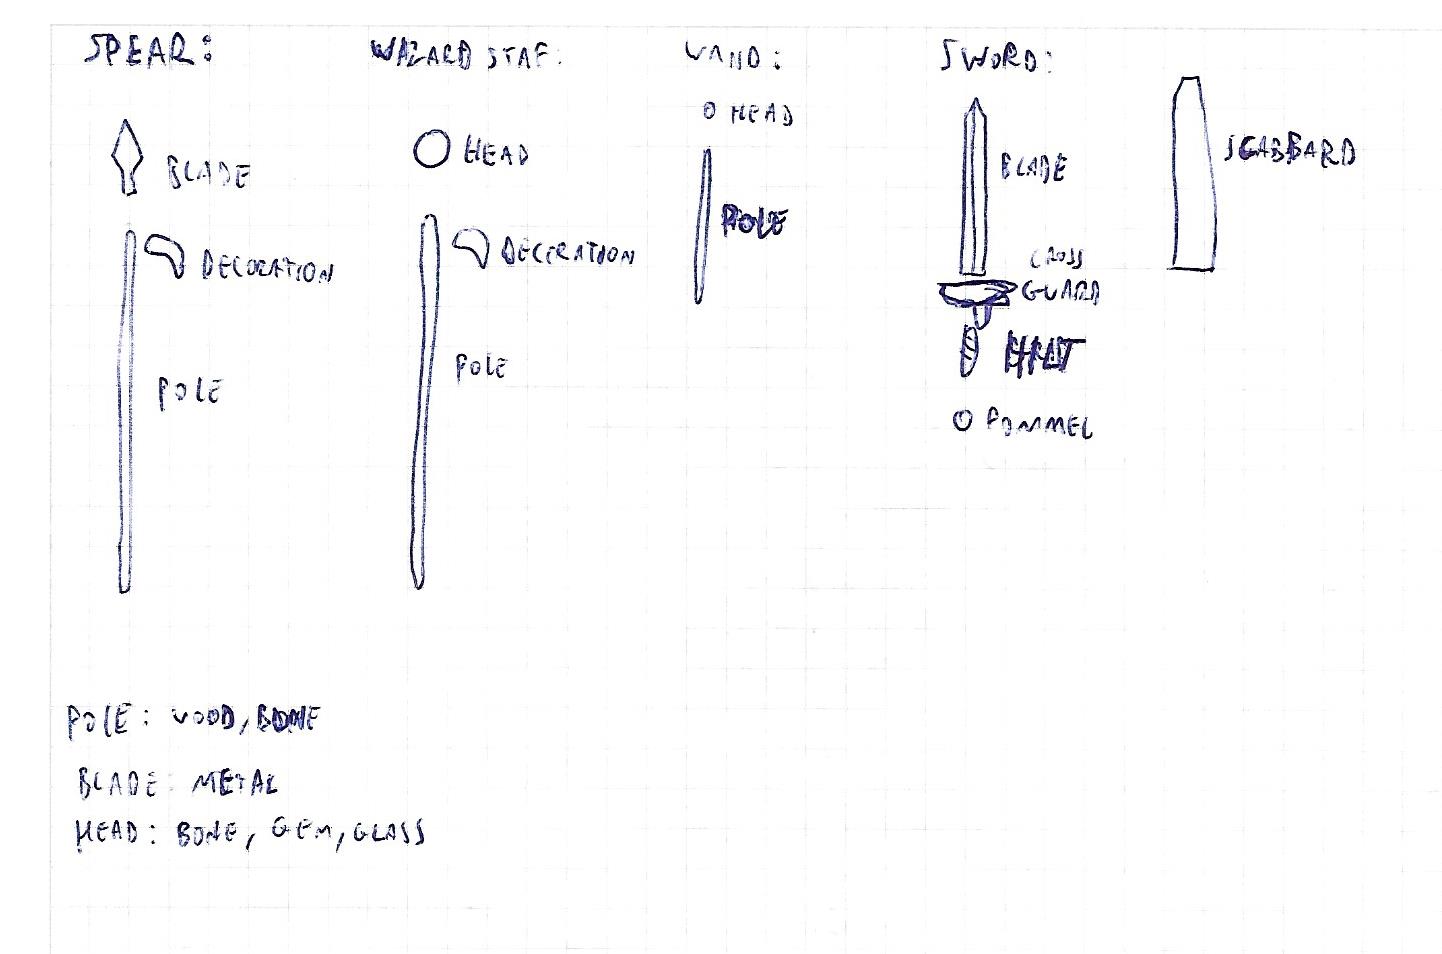 SPEAR:
BLADE
DECORATION
POLE
WAZARD STAF:
HEAD
DECERATION
POLE
WAND:
HEAD
POLE
SWORD:
BLADE
CROSS
GUARD
HILT
POMMEL
SCABBARD
POLE: WOOD, BONE
BLADE: METAL
HEAD: BONE, GEM, GLASS